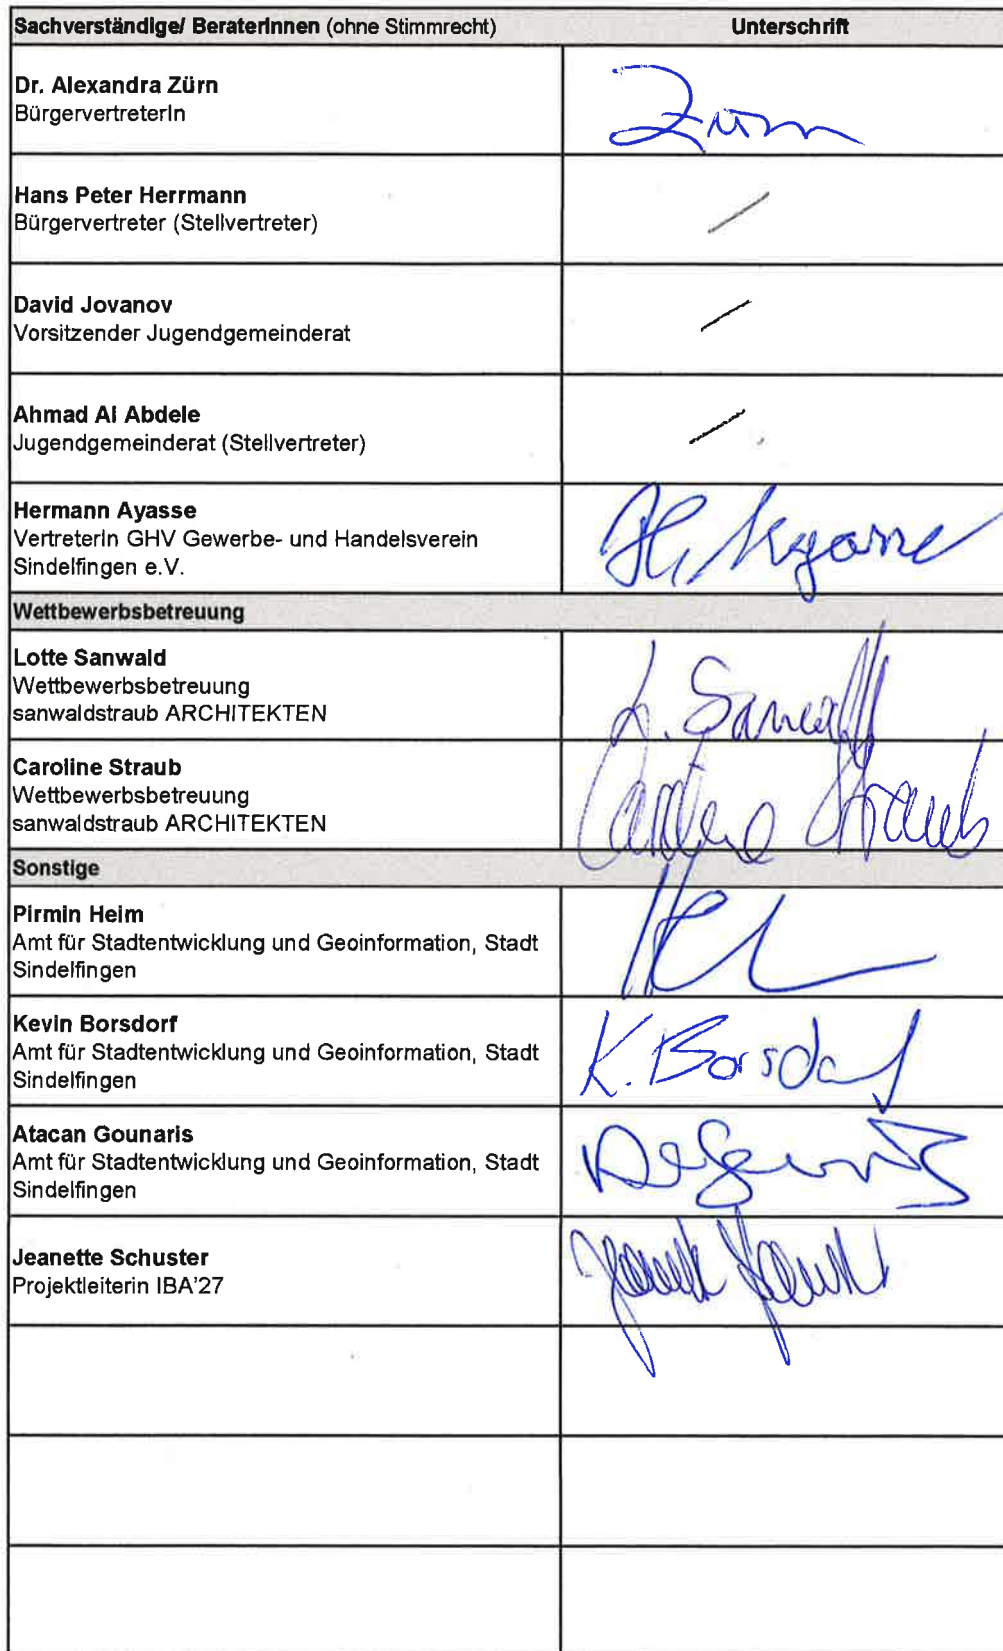 Sachverständige/ BeraterInnen (ohne Stimmrecht) Unterschrift
Dr. Alexandra Zürn
BürgervertreterIn
Zürn
Hans Peter Herrmann
Bürgervertreter (Stellvertreter)
David Jovanov
Vorsitzender Jugendgemeinderat
Ahmad Al Abdele
Jugendgemeinderat (Stellvertreter)
Hermann Ayasse
VertreterIn GHV Gewerbe- und Handelsverein
Sindelfingen e.V.
H. Ayasse
Wettbewerbsbetreuung
Lotte Sanwald
Wettbewerbsbetreuung
sanwaldstraub ARCHITEKTEN
L. Sanwald
Caroline Straub
Wettbewerbsbetreuung
sanwaldstraub ARCHITEKTEN
Caroline Straub
Sonstige
Pirmin Heim
Amt für Stadtentwicklung und Geoinformation, Stadt
Sindelfingen
Kevin Borsdorf
Amt für Stadtentwicklung und Geoinformation, Stadt
Sindelfingen
K. Borsdorf
Atacan Gounaris
Amt für Stadtentwicklung und Geoinformation, Stadt
Sindelfingen
Jeanette Schuster
Projektleiterin IBA'27